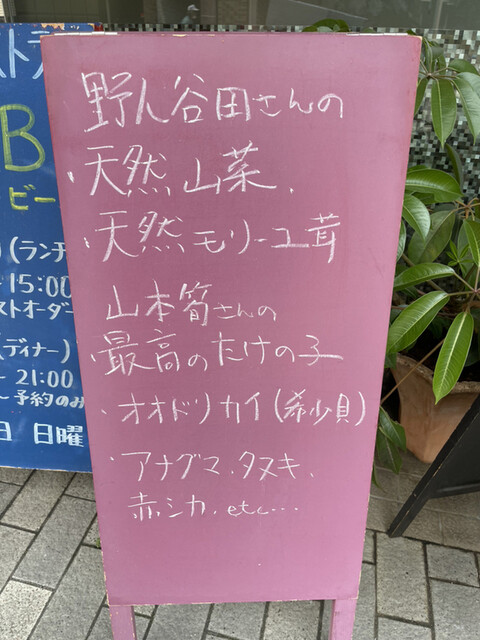 野人谷田さんの
・天然山菜、
・天然モリーユ茸
山本筍さんの
最高のたけの子
・オオドリカイ(希少貝)
・アナグマ、タヌキ、
赤シカ、etc…
ストラ
B
ビー
(ランチ
15:00
ストオーダー
(ディナー)
～ 21:00
～予約のみ
日 日曜